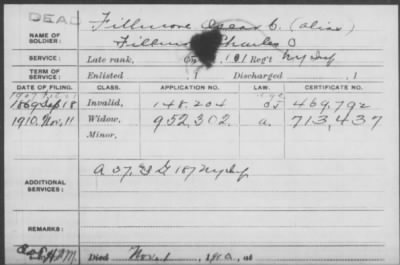 DEAD
Fillmore Oscar C. (alias)
NAME OF SOLDIER:
Fillmore, Charles O
SERVICE: Late rank, 101 Reg't NY Inf
TERM OF SERVICE: Enlisted , 1 Discharged , 1
DATE OF FILING. CLASS. APPLICATION NO. LAW. CERTIFICATE NO.
1869 Sep 18 Invalid, 148.204 469,792
1910. Nov. 11 Widow, 952,302. a. 713,437
Minor,
ADDITIONAL SERVICES:
A 37, & G 187 NY Inf
REMARKS:
Died Nov. 1, 1910, at